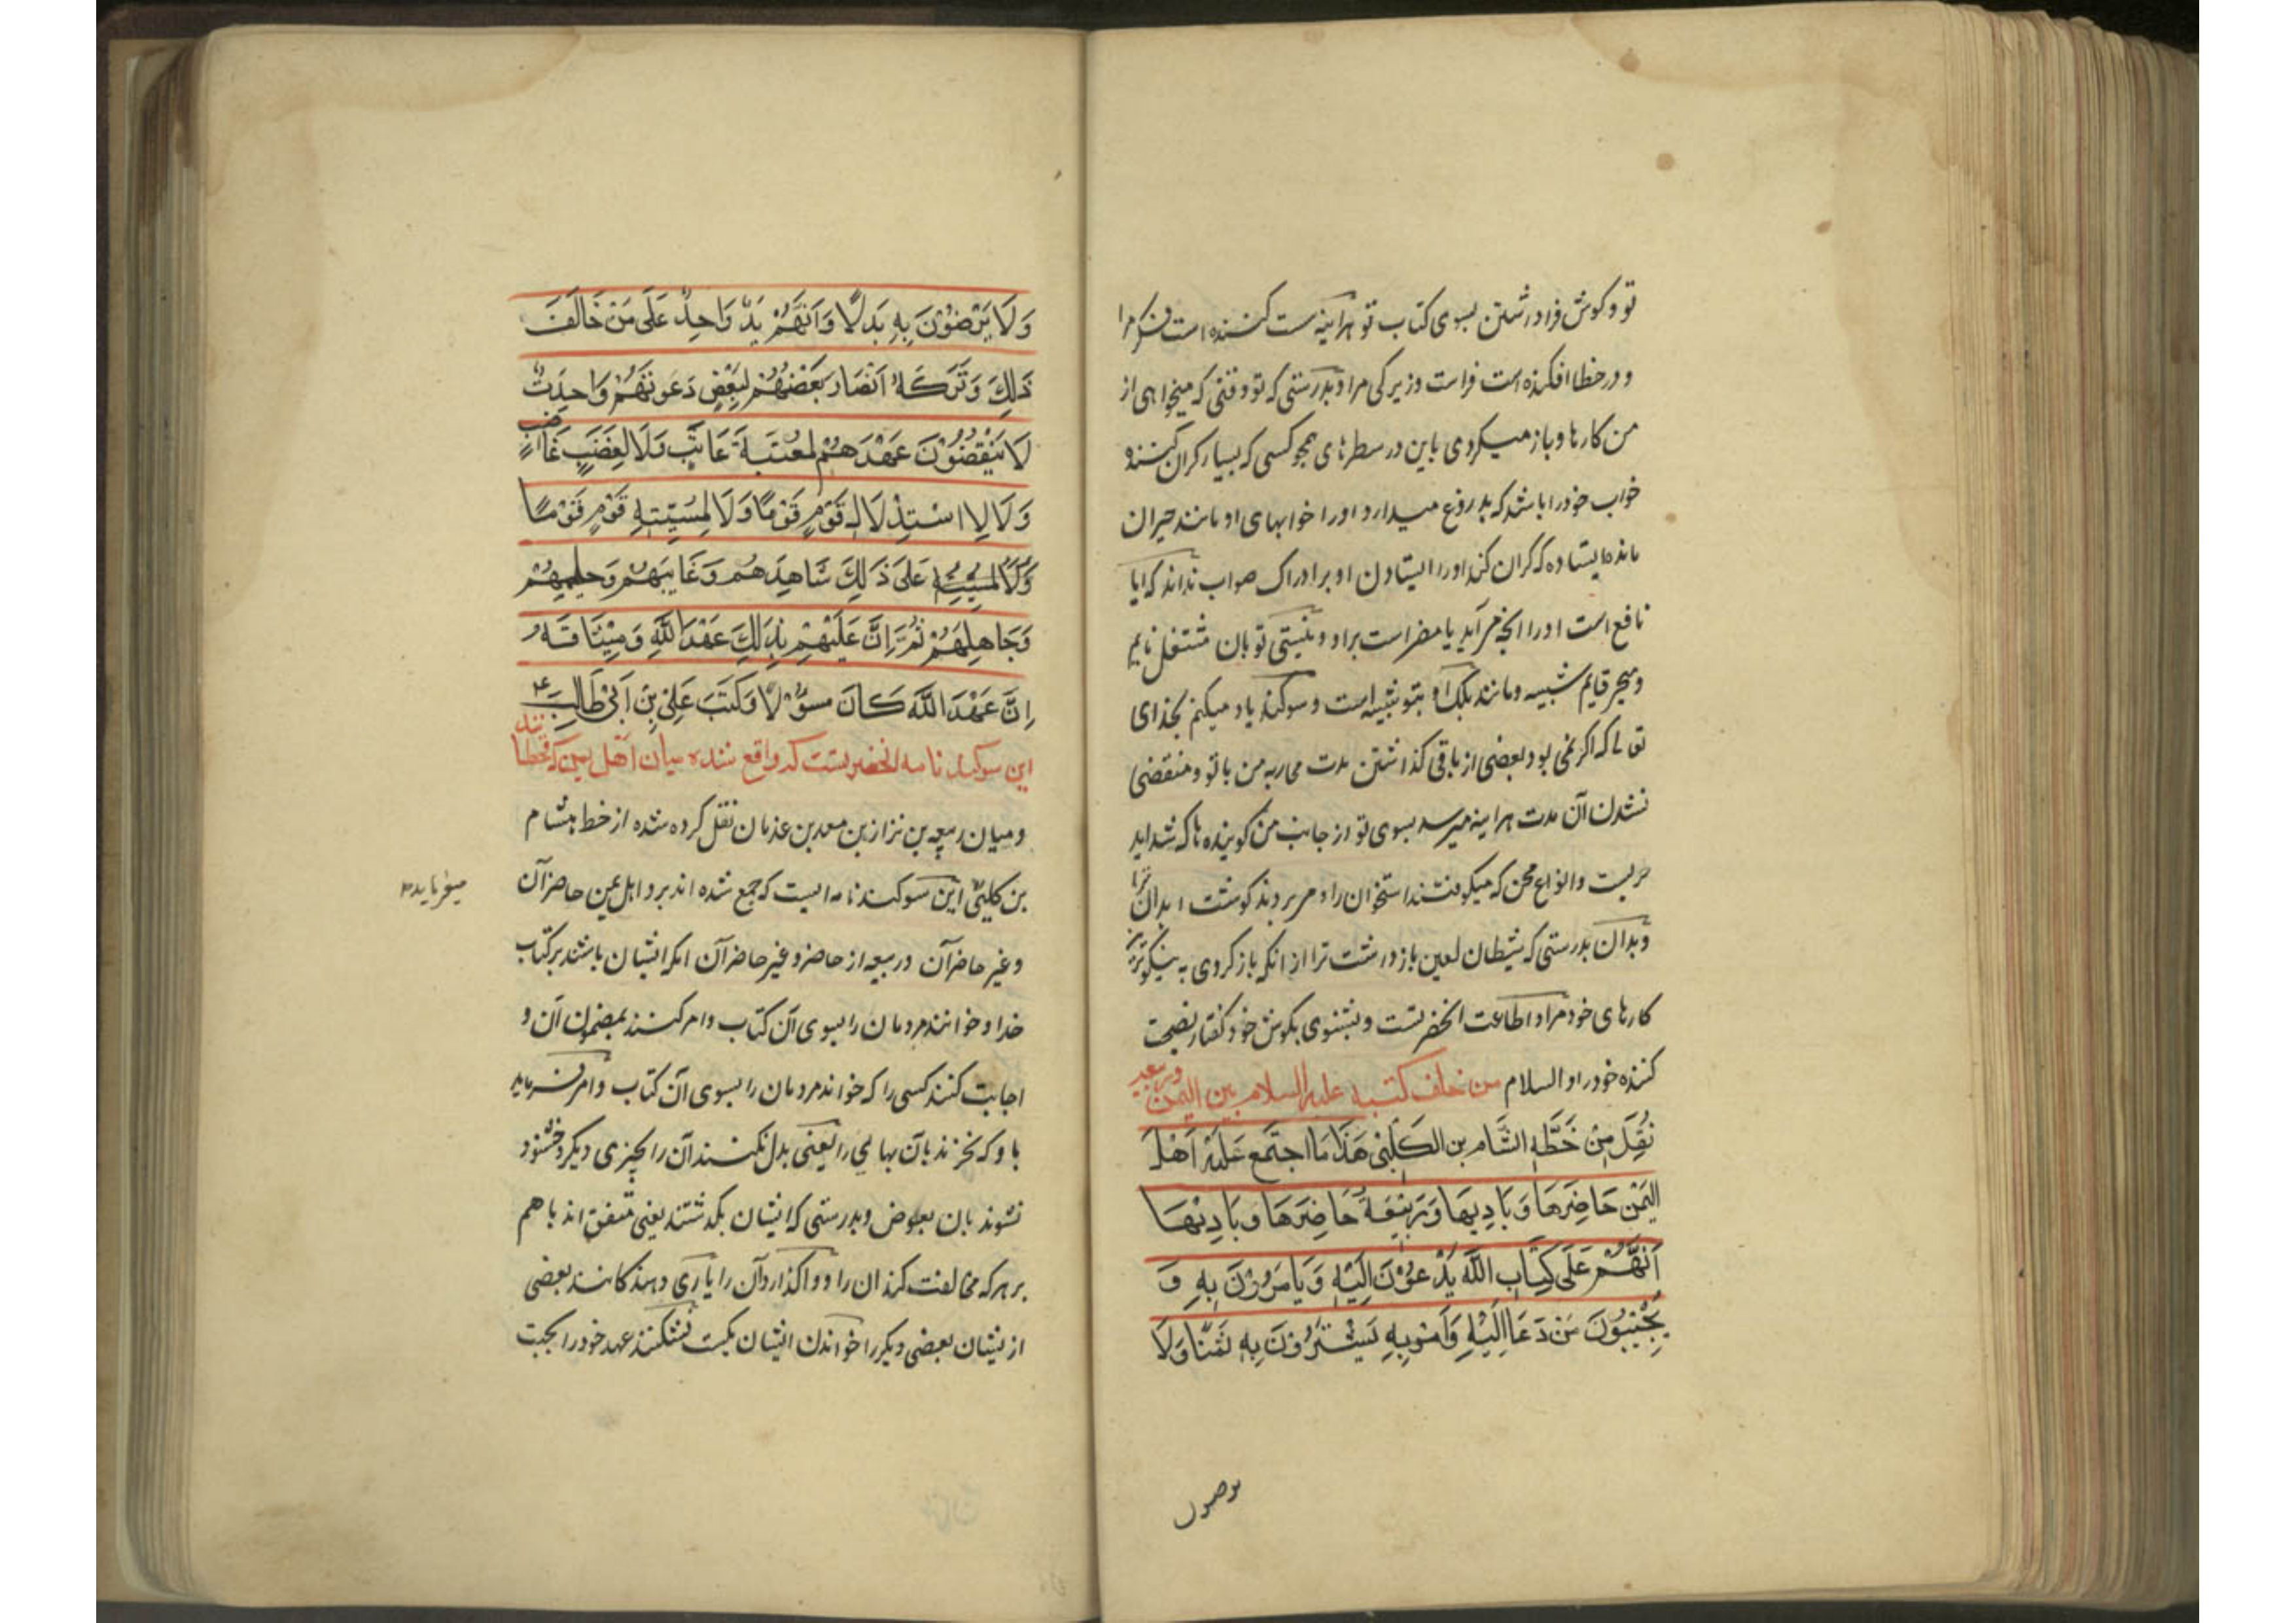 تو و کوش فرا داشتن بسوی کتاب تو هراینه سست کننده است فکر مرا
و در خطا افکنده است فراست و زیرکی مرا و بدرستی که تو وقتی که میخواهی از
من کارها و باز میکردی باین در سطرهای همچو کسی که بسیار کران کننده
خواب خود را باشد که بدروغ میدارد اورا خوابهای او مانند حیران
مانده ایستاده که کران کند اورا ایستادن او برادراک صواب نداند که ایا
نافع است اورا انچه مرآید یا مضر است براو و نیستی تو بان مشتغل نایم
قایم شبیه و مانند بلکه او بتو شبیه است و سوکند یاد میکنم بخدای
تعالی که اکر نمی بود بعضی از باقی کذاشتن مدت محاربه من باتو و منقضی
نشدن آن مدت هراینه میرسد بسوی تو از جانب من کوبنده ها که شداید
حربست و انواع محن که میکوفتند استخوان را و می بردند کوشت ابدان را
و بدان بدرستی که شیطان لعین باز داشت ترا از انکه باز کردی به نیکوترین
کارهای خود مراد اطاعت انحضرتست و بشنوی بکوش خود کفتار نصیحت
کننده خود را و السلام من حلف کتبه علیه السلام بین الیمن و ربیعه
نُقِلَ مِنْ خَطِّهِ الشَّام بن الکَلْبیِّ هَذَا مَا اجتَمَعَ عَلَیْهِ اَهْلُ
الیَمَنِ حَاضِرَهَا وَ بَادِیهَا وَ رَبِیْعَةُ حَاضِرَهَا وَ بَادِیْهَا
اَنَّهُمْ عَلَی کِتَابِ اللّهِ یَدْعُوْنَ اِلَیْهِ وَ یَامُرُوْنَ بِهِ وَ
یُجِیْبُوْنَ مَنْ دَعَا اِلَیْهِ وَ اَمَرَ بِهِ لَا یَشْتَرُوْنَ بِهِ ثَمَنًا وَ لَا
وَلَا یَرْضَوْنَ بِهِ بَدَلًا وَ اَنَّهُمْ یَدٌ وَاحِدٌ عَلَی مَنْ خَالَفَ
ذٰلِكَ وَ تَرَکَهُ اَنْصَار بَعْضُهُمْ لِبَعْضٍ دَعْوتُهُمْ وَاحِدَتٌ
لَا یَنْقُضُوْنَ عَهْدَهُمْ لِمَعْتَبَةِ عَاتِبٍ وَلَا لِغَضَبِ غَاضبٍ
وَ لَا لِاسْتِذْلَالِ قَوْمٍ قَوْمًا وَ لَا لِمَسَبَّةِ قَوْمٍ قَوْمًا
عَلَی ذَلِكَ شَاهِدُهُم وَ غَایِبُهُمْ وَ حلیمُهُمْ
وَ جَاهِلُهُمْ ثُمَّ اِنَّ عَلَیْهِمْ بِذَلِكَ عَهْدَ اللّهِ وَ مِیْثَاقَهُ
اِنَّ عَهْدَ اللّهِ کَانَ مسؤلًا وَ کَتَبَ عَلِیُّ بْنُ اَبِیْ طَالِبٍ ۴
این سوکند نامه انحضرتست که واقع شده میان اهل یمن که قحطانند
و میان ربیعه بن نزار بن معد بن عدنان نقل کرده شده از خط هشام
بن کلبی این سوکند نامه ایست که جمع شده اند برو اهل یمن حاضر آن
میفرماید
و غیر حاضر آن و ربیعه از حاضر و غیر حاضر آن انکه ایشان باشند بر کتاب
خدا و خوانند مردمان را بسوی آن کتاب و امر کنند بمضمون آن و
اجابت کنند کسی را که خواند مردمان را بسوی آن کتاب و امر فرماید
باو که نخرند بآن بهایی را یعنی بدل نکنند آن را بچیزی دیکر و خشنود
نشوند بان بعوض و بدرستی که ایشان یکدستند یعنی متفق اند باهم
بر هر که مخالفت کند ان را و واکذارد آن را یاری دهند کانند بعضی
از یشان بعضی دیکر را خواندن ایشان یکیست نشکنند عهد خود را بجهت